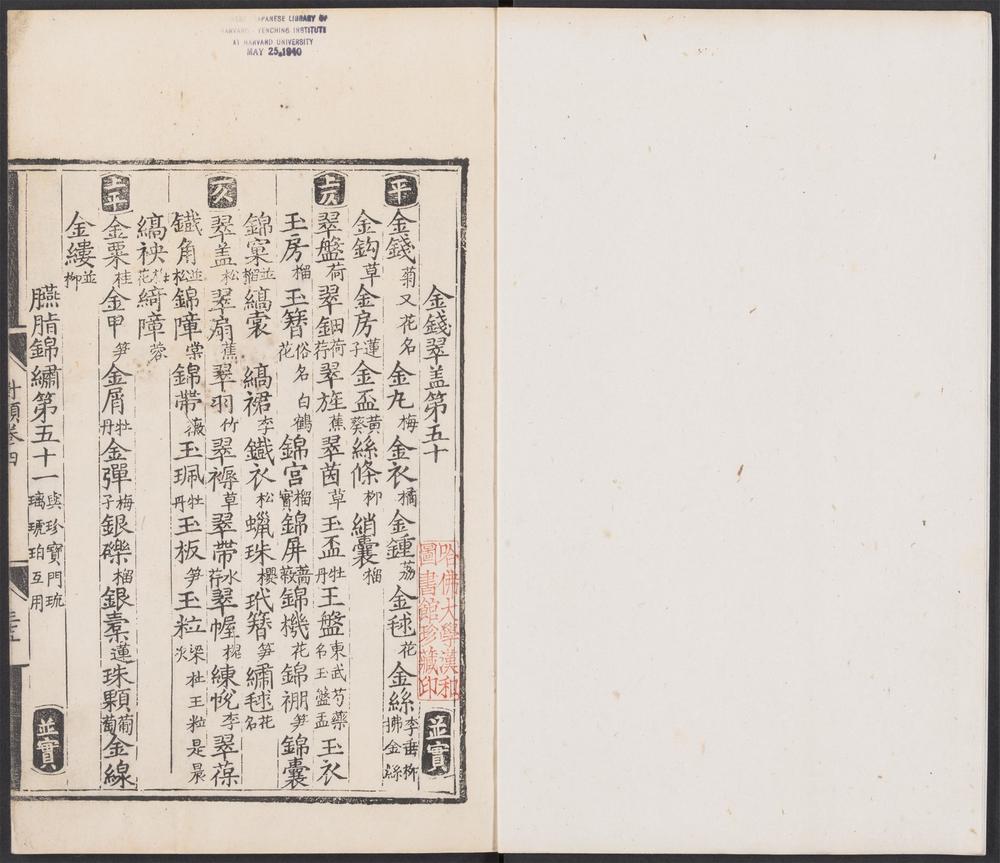 JAPANESE LIBRARY OF
HARVARD-YENCHING INSTITUTE
AT HARVARD UNIVERSITY
MAY 25 1940
金錢翠盖第五十 並實
平 金錢菊又花名 金丸梅 金衣橘 金鍾荔 金毬花 金絲李垂柳拂金絲
金鈎草 金房蓮子 金盃黃葵 絲條柳 綃囊榴
上仄 翠盤荷 翠鈿荷荇 翠旌蕉 翠茵草 玉盃牡丹 玉盤東武芍藥名玉盤盂 玉衣
玉房榴 玉簪俗名白鶴花 錦宫榴實 錦屏薔薇 錦機花 錦棚笋 錦囊
錦窠並榴 縞裳 縞裙李 鐵衣松 蠟珠櫻 玳簪笋 繡毬花名
仄 翠盖松 翠扇蕉 翠羽竹 翠褥草 翠帶水荇 翠幄槐 練帨李 翠葆
鐵角並松 錦障棠 錦帶薇 玉珮牡丹 玉板笋 玉粒梁杜玉粒是晨炊
縞袂牡花 綺障蓉
上平 金粟桂 金甲笋 金屑牡丹 金彈梅子 銀礫榴 銀囊蓮 珠顆葡萄 金線
金縷並柳
臙脂錦繡第五十一 與珍寶門琉璃琥珀互用 並實
對類卷四
哈佛大學漢和
圖書館珍藏印